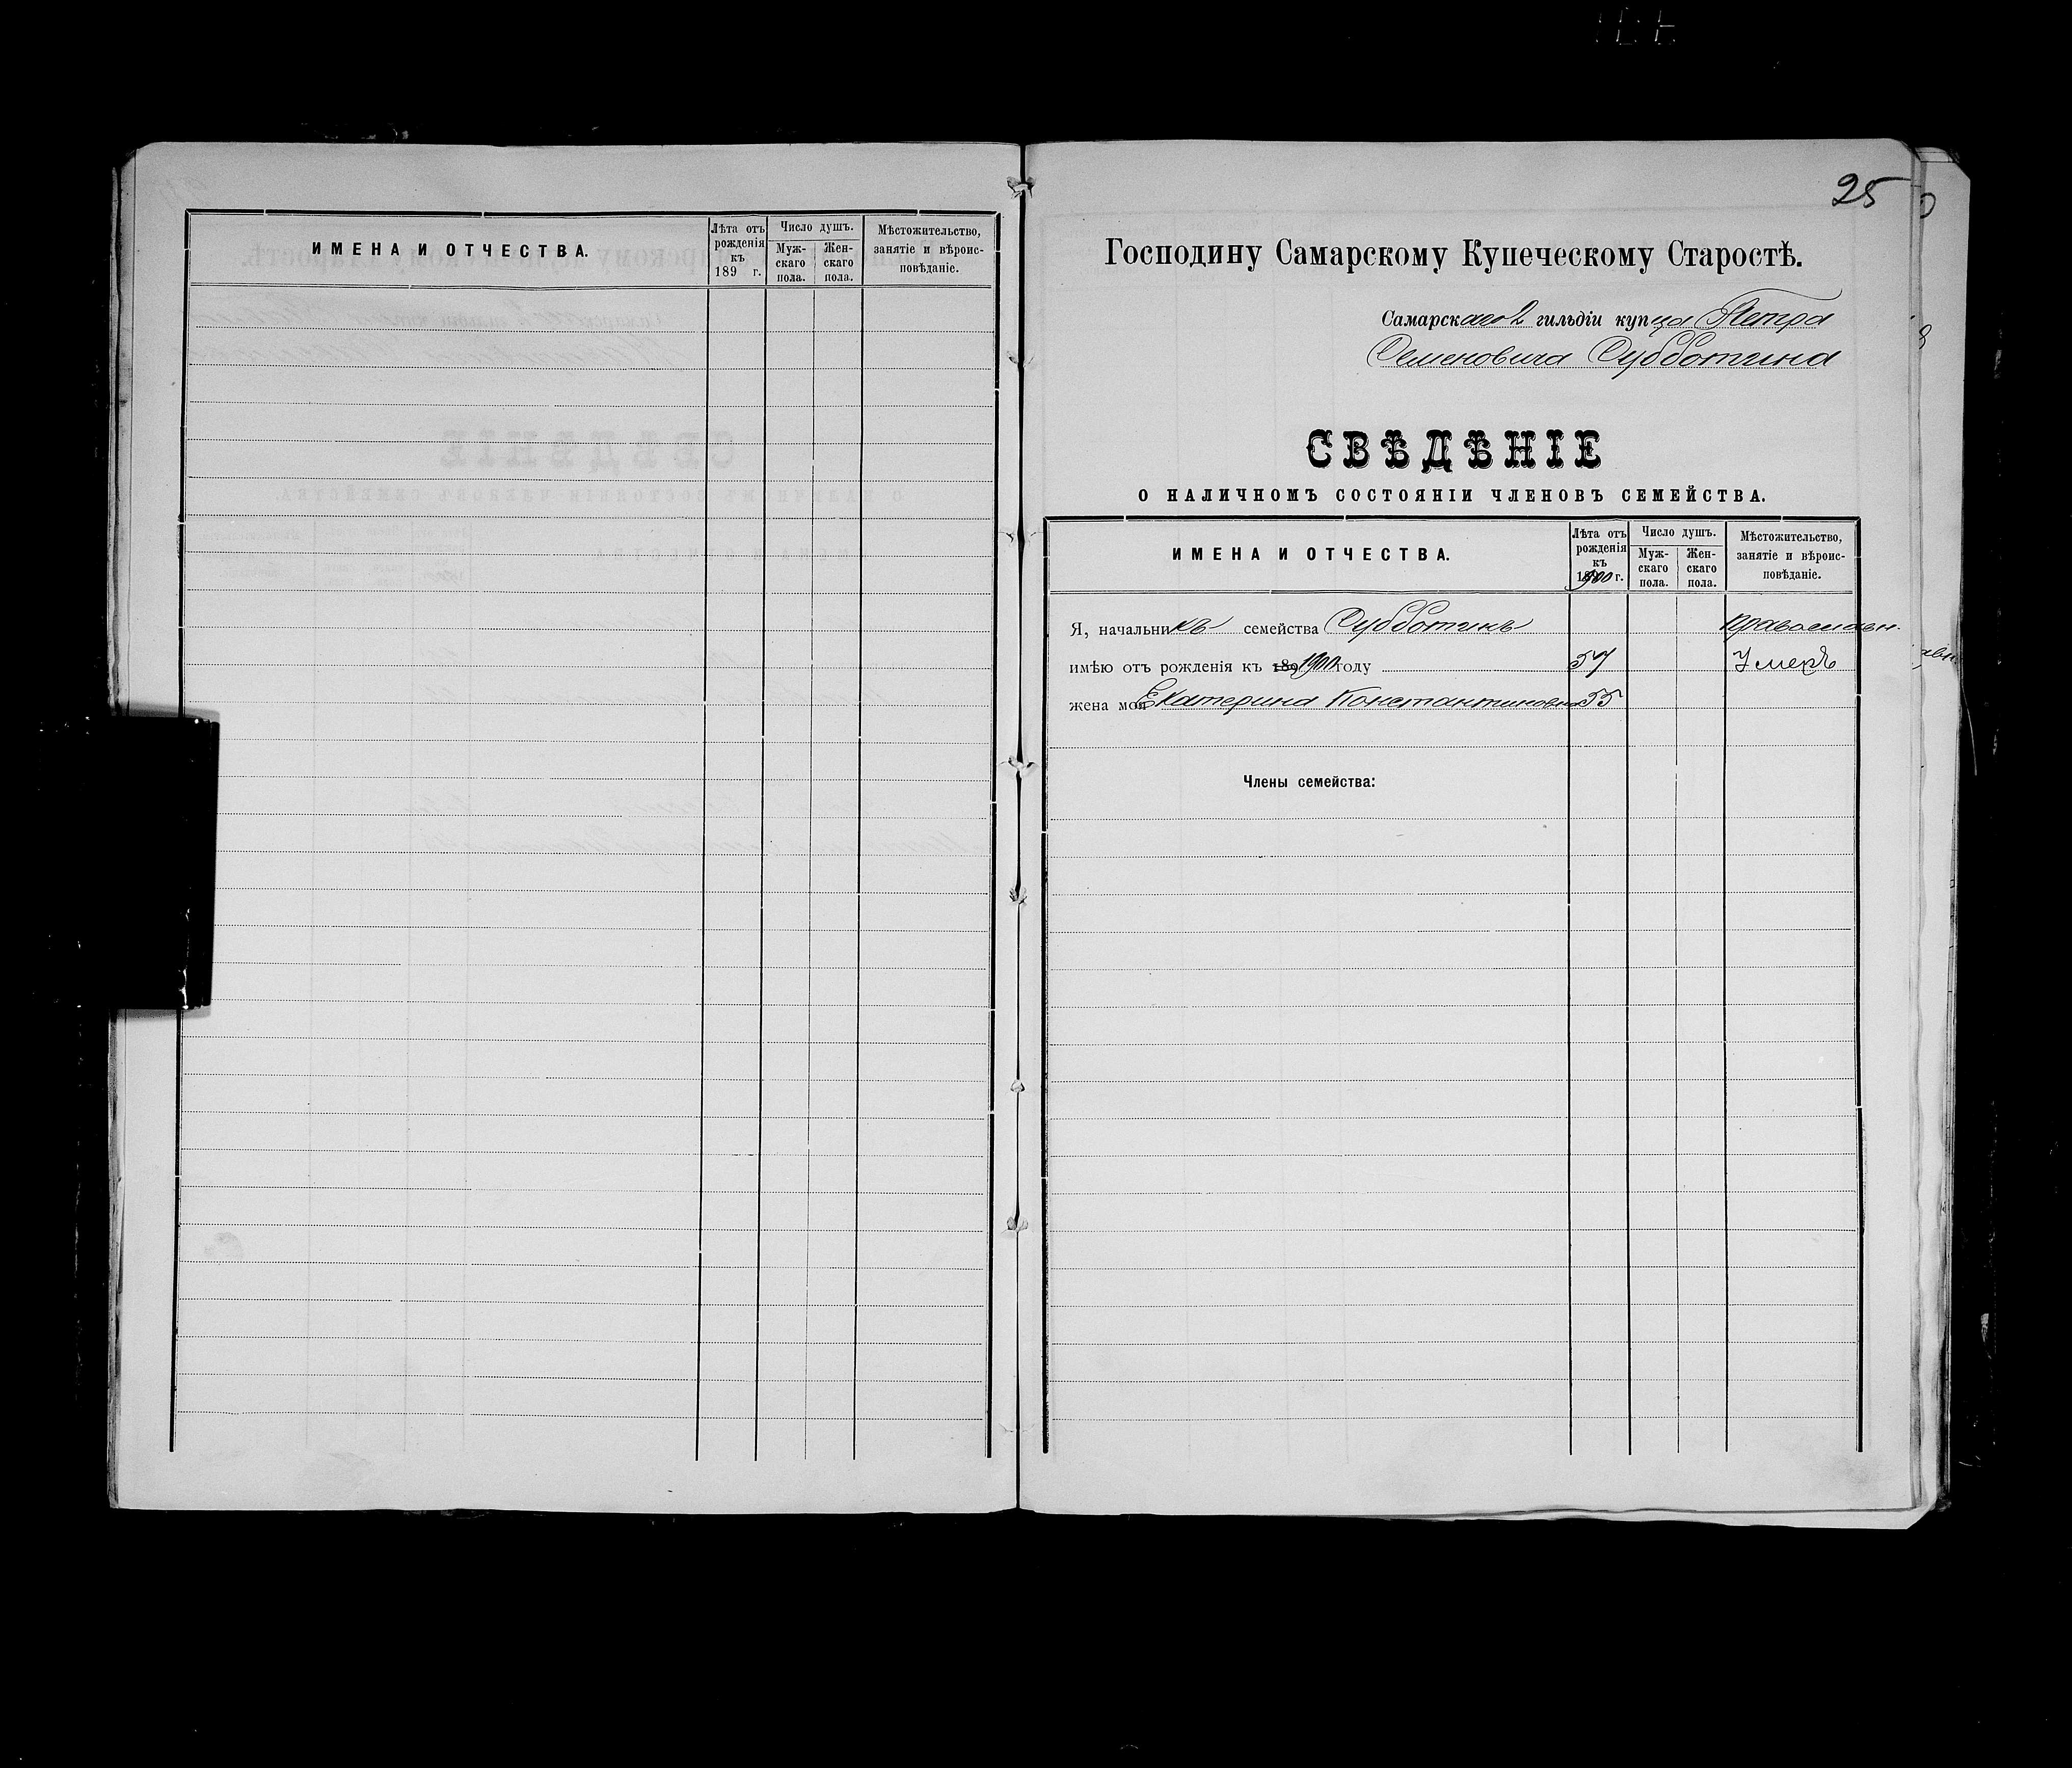 ИМЕНА И ОТЧЕСТВА.
Лѣта отъ рожденія къ 189 г.
Число душъ.
Муж-скаго пола.
Жен-скаго пола.
Мѣстожительство, занятіе и вѣроис-повѣданіе.
25
Господину Самарскому Купеческому Старостѣ.
Самарскаго 2 гильдіи купца Петра
Семеновича Субботина
СВѢДѢНІЕ
О НАЛИЧНОМЪ СОСТОЯНІИ ЧЛЕНОВЪ СЕМЕЙСТВА.
ИМЕНА И ОТЧЕСТВА.
Лѣта отъ рожденія къ 1900 г.
Число душъ.
Муж-скаго пола.
Жен-скаго пола.
Мѣстожительство, занятіе и вѣроис-повѣданіе.
Я, начальникъ семейства Субботинъ православн.
имѣю отъ рожденія къ 189 1900 году 57
жена моя Екатерина Константиновна 55
Члены семейства: